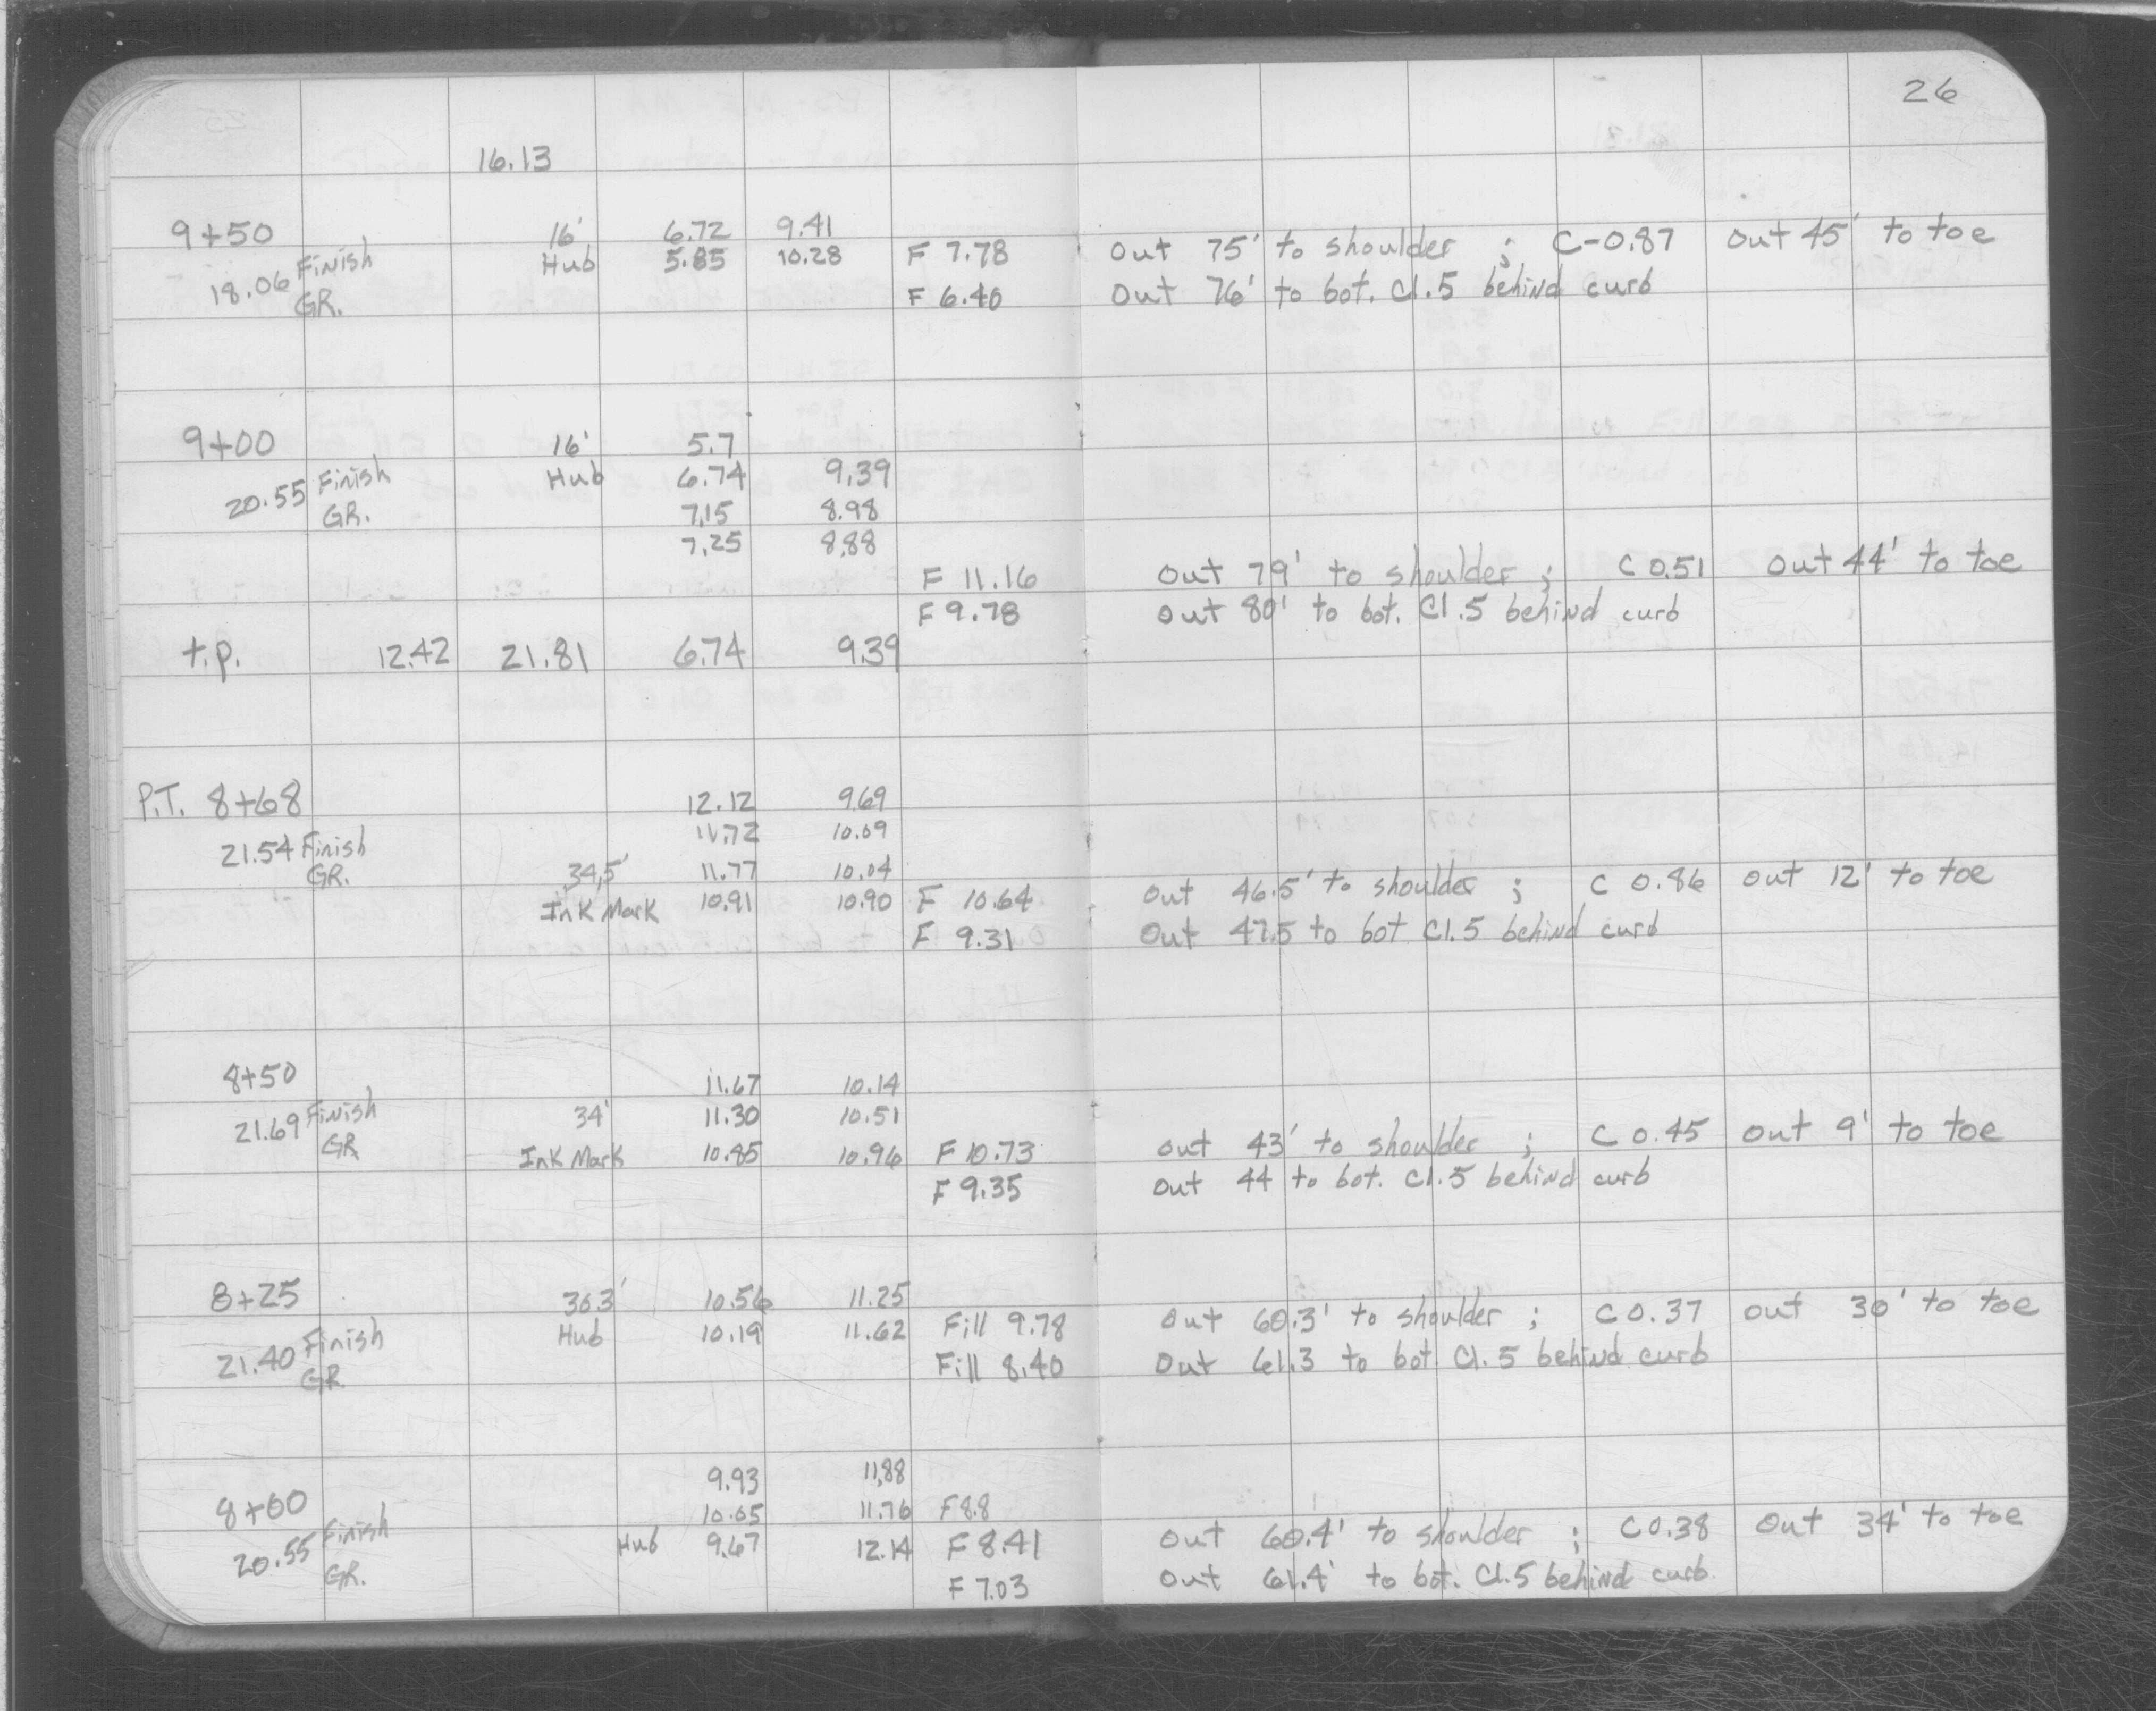 26
16.13
9+50 16' 6.72 9.41
18.06 Finish Hub 5.85 10.28 F 7.78 Out 75' to shoulder ; C-0.87 Out 45' to toe
GR. F 6.40 Out 76' to bot. Cl.5 behind curb
9+00 16' 5.7
20.55 Finish Hub 6.74 9.39
GR. 7.15 8.98
7.25 8.88
F 11.16 Out 79' to shoulder ; C 0.51 Out 44' to toe
F 9.78 Out 80' to bot. Cl.5 behind curb
t.p. 12.42 21.81 6.74 9.39
P.T. 8+68 12.12 9.69
21.54 Finish 11.72 10.09
GR. 34.5' 11.77 10.04
Ink Mark 10.91 10.90 F 10.64 Out 46.5' to shoulder ; C 0.86 Out 12' to toe
F 9.31 Out 47.5 to bot Cl.5 behind curb
8+50 11.67 10.14
21.69 Finish 34' 11.30 10.51
GR Ink Mark 10.85 10.96 F 10.73 Out 43' to shoulder ; C 0.45 Out 9' to toe
F 9.35 Out 44 to bot. Cl.5 behind curb
8+25 30.3' 10.56 11.25
21.40 Finish Hub 10.19 11.62 Fill 9.78 Out 60.3' to shoulder ; C 0.37 Out 30' to toe
GR Fill 8.40 Out 61.3 to bot Cl.5 behind curb
9.93 11.88
8+00 10.05 11.76 F 8.8
20.55 Finish Hub 9.67 12.14 F 8.41 Out 60.4' to shoulder ; C 0.38 Out 34' to toe
GR. F 7.03 Out 61.4' to bot. Cl.5 behind curb